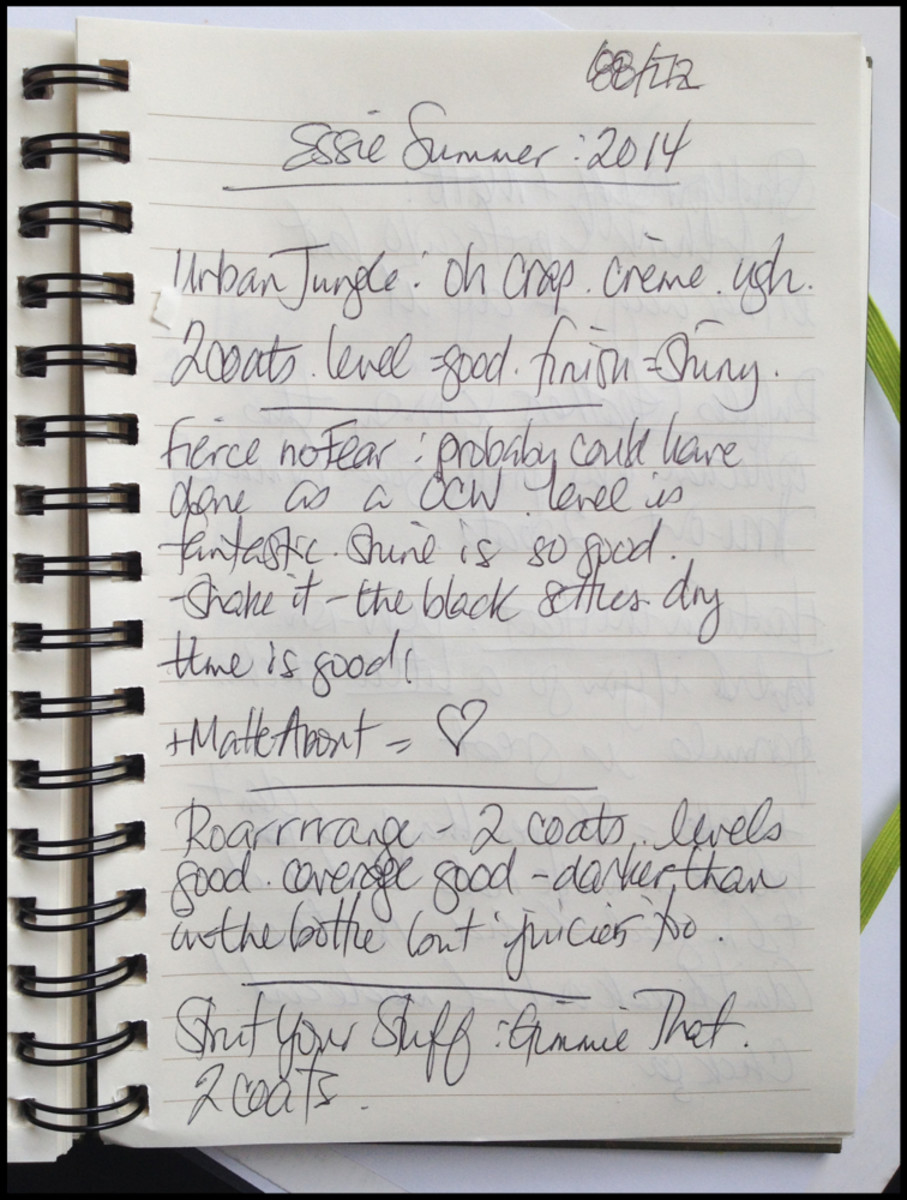 Essie Summer : 2014
Urban Jungle : oh crap. crème. ugh.
2 coats. level = good. finish = shiny.
Fierce no Fear : probaby could have
done as a OCW - level is
fantastic. Shine is so good.
- Shake it - the black settles. dry
time is good!
+ Matte About = ♡
Roarrrrange - 2 coats. levels
good. coverage good - darker than
in the bottle but juicier too.
Strut Your Stuff : Gimmie That.
2 coats.